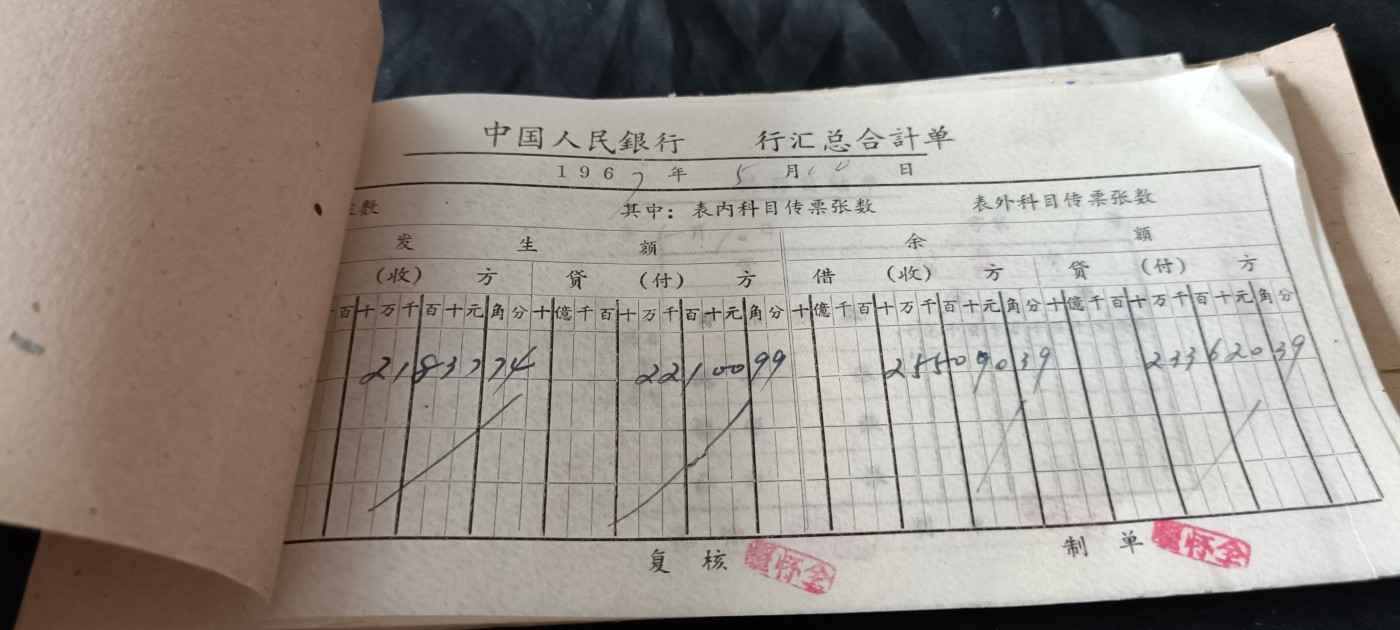 中国人民銀行 行汇总合計单
1967年 5月10日
数 其中：表内科目传票张数 表外科目传票张数
发生額 余額
(收)方 贷(付)方 借(收)方 贷(付)方
百十万千百十元角分 十億千百十万千百十元角分 十億千百十万千百十元角分 十億千百十万千百十元角分
2183774 2210099 25509039 23362039
复核 怀全 制单 怀全